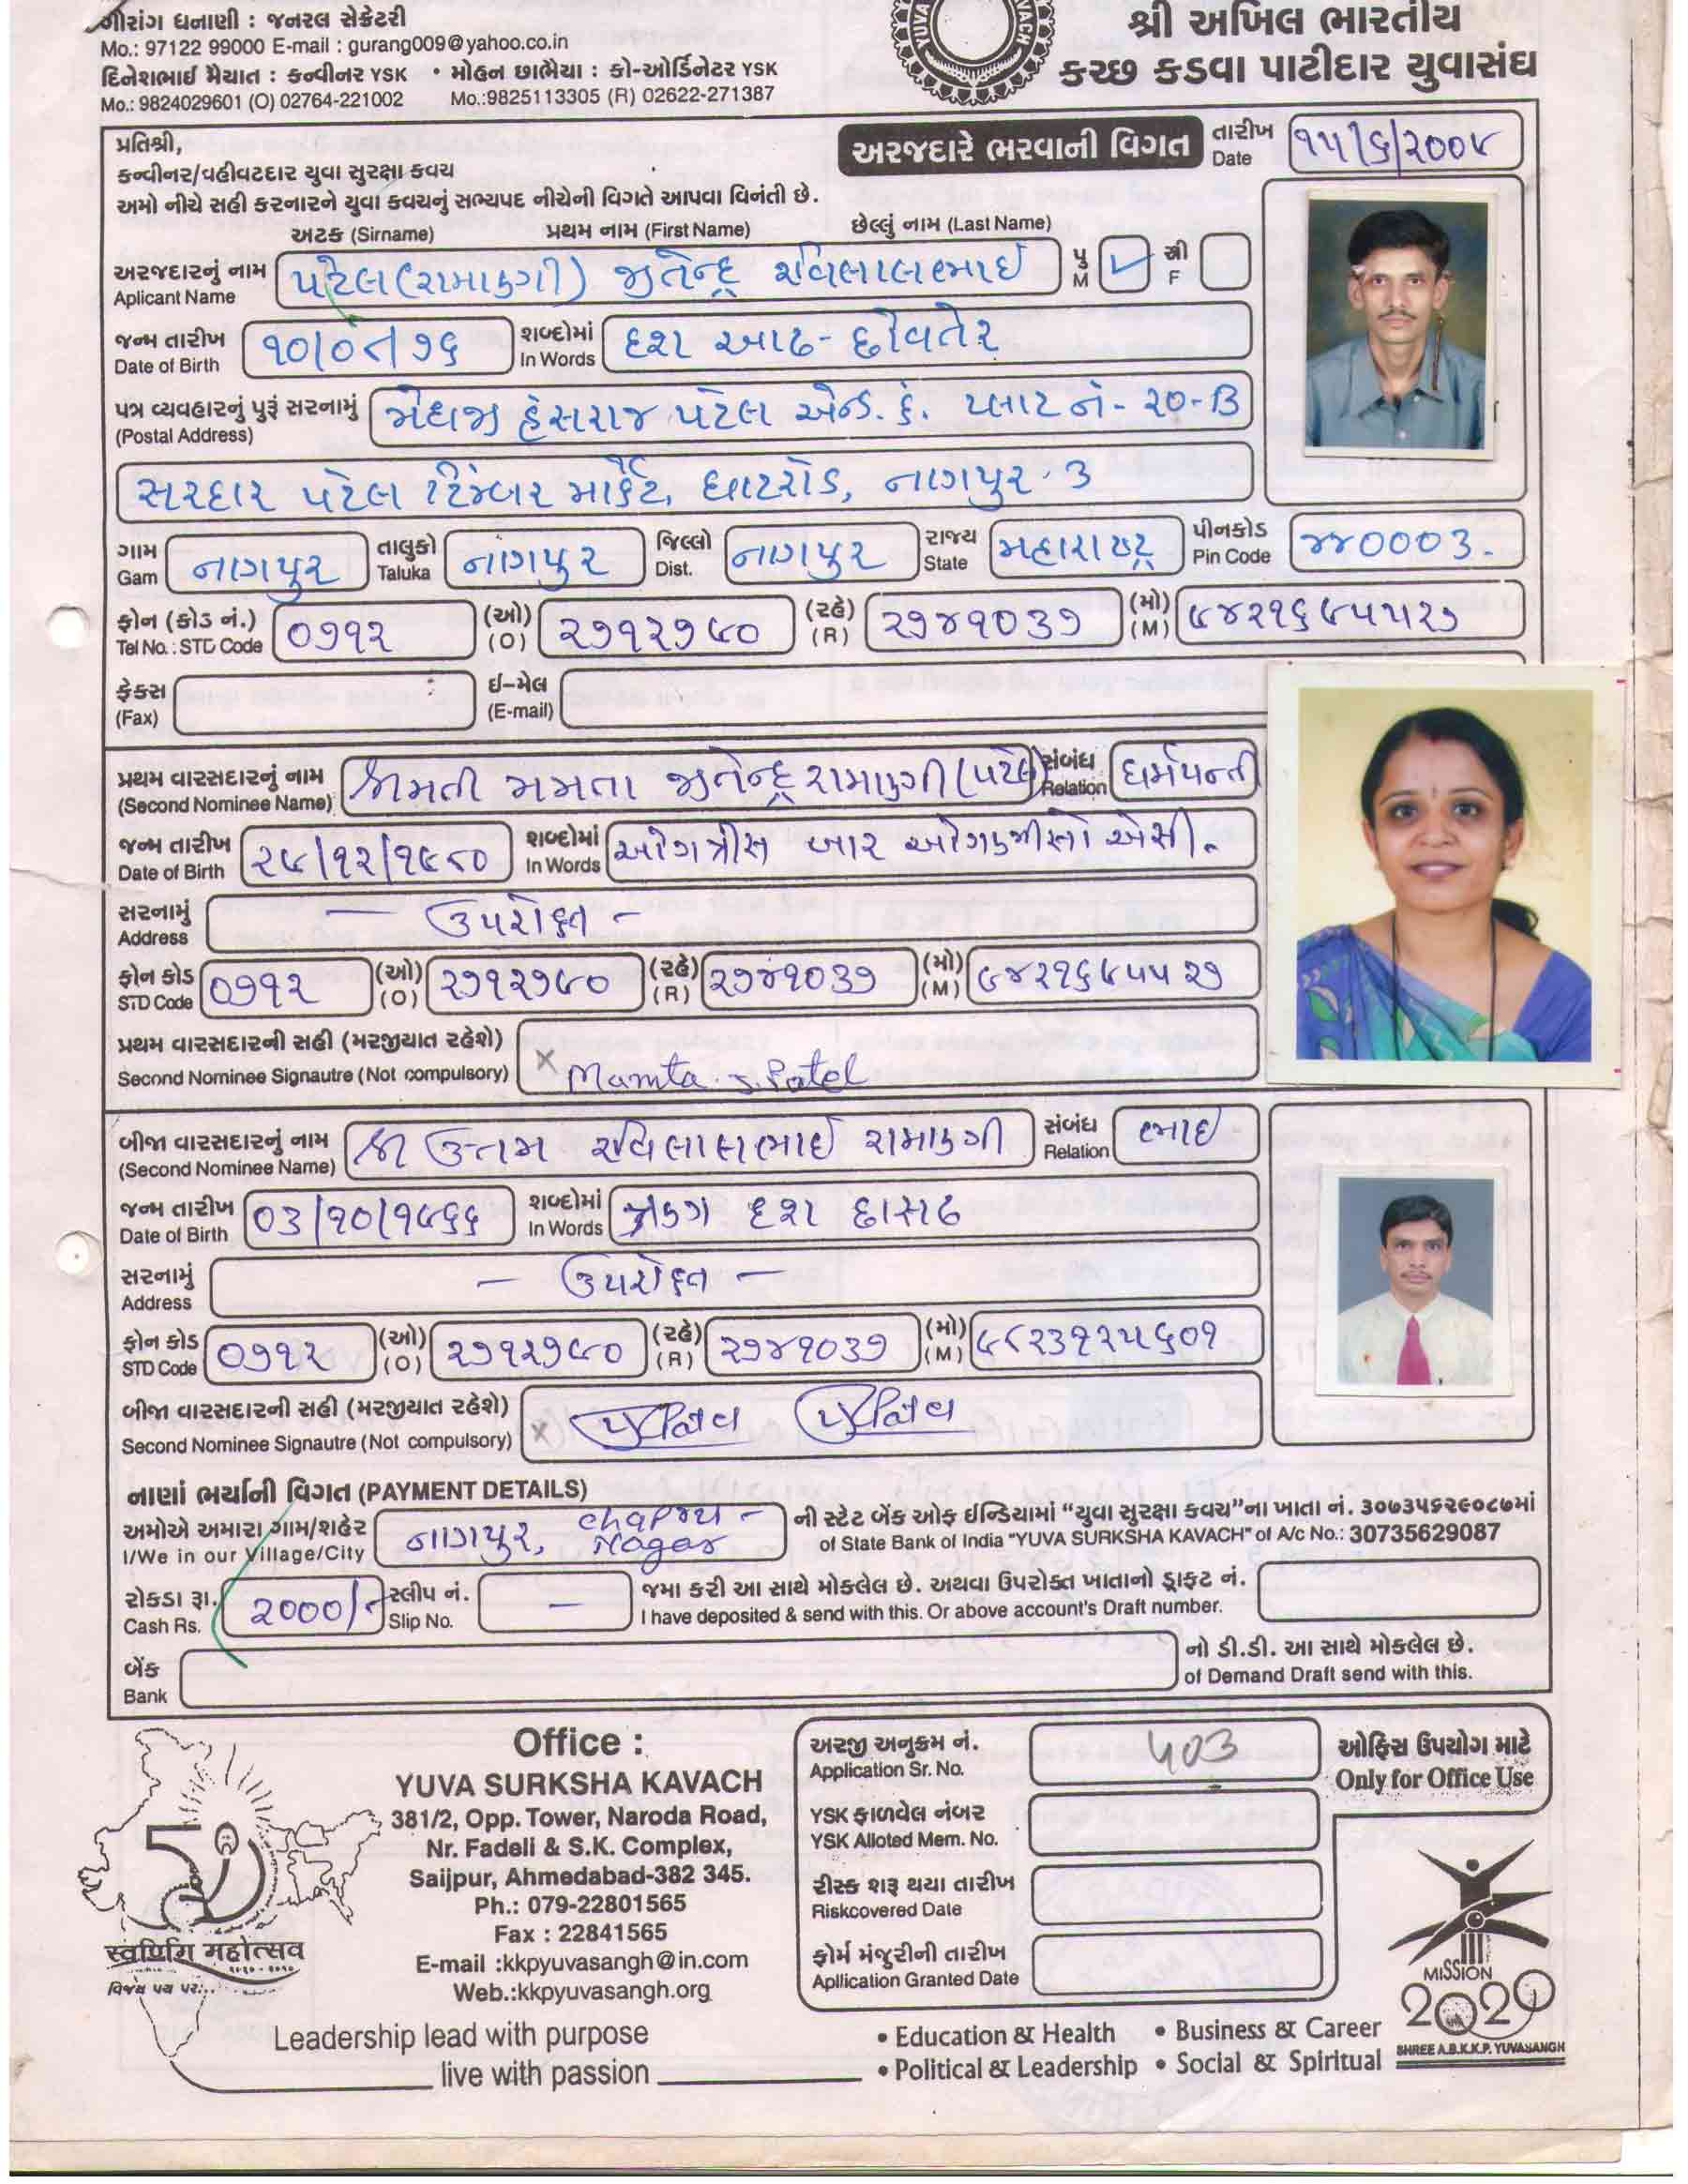 ગૌરાંગ ધનાણી : જનરલ સેક્રેટરી
Mo.: 97122 99000 E-mail : gurang009@yahoo.co.in
દિનેશભાઈ મૈયાત : કન્વીનર YSK • મોહન છાભૈયા : કો-ઓર્ડિનેટર YSK
Mo.: 9824029601 (O) 02764-221002 Mo.:9825113305 (R) 02622-271387
શ્રી અખિલ ભારતીય
કચ્છ કડવા પાટીદાર યુવાસંઘ
પ્રતિશ્રી,
કન્વીનર/વહીવટદાર યુવા સુરક્ષા કવચ
અમો નીચે સહી કરનારને યુવા કવચનું સભ્યપદ નીચેની વિગતે આપવા વિનંતી છે.
અરજદારે ભરવાની વિગત
તારીખ Date ૧૫/૬/૨૦૦૯
અટક (Sirname) પ્રથમ નામ (First Name) છેલ્લું નામ (Last Name)
અરજદારનું નામ Aplicant Name પટેલ (રામાણી) જીતેન્દ્ર રવિલાલભાઈ પુ M ✓ સ્રી F
જન્મ તારીખ Date of Birth ૧૦/૦૮/૭૬ શબ્દોમાં In Words દશ આઠ - છોવતેર
પત્ર વ્યવહારનું પુરૂં સરનામું (Postal Address) મેઘજી હંસરાજ પટેલ એન્ડ. કું. પ્લાટ નં - ૨૦-B
સરદાર પટેલ ટિંમ્બર માર્કેટ, ઘાટરોડ, નાગપુર-૩
ગામ Gam નાગપુર તાલુકો Taluka નાગપુર જિલ્લો Dist. નાગપુર રાજ્ય State મહારાષ્ટ્ર પીનકોડ Pin Code ૪૪૦૦૦૩.
ફોન (કોડ નં.) Tel No. : STD Code ૦૭૧૨ (ઓ) (O) ૨૭૧૨૭૯૦ (રહે) (R) ૨૭૪૧૦૩૭ (મો) (M) ૯૪૨૧૬૯૫૫૨૭
ફેક્સ (Fax) ઈ-મેલ (E-mail)
પ્રથમ વારસદારનું નામ (Second Nominee Name) શ્રીમતી મમતા જીતેન્દ્ર રામાણી (પટેલ) સંબંધ Relation ધર્મપત્ની
જન્મ તારીખ Date of Birth ૨૯/૧૨/૧૯૮૦ શબ્દોમાં In Words ઓગત્રીસ બાર ઓગણીસો એસી.
સરનામું Address — ઉપરોક્ત -
ફોન કોડ STD Code ૦૭૧૨ (ઓ) (O) ૨૭૧૨૭૯૦ (રહે) (R) ૨૭૪૧૦૩૭ (મો) (M) ૯૪૨૧૬૯૫૫૨૭
પ્રથમ વારસદારની સહી (મરજીયાત રહેશે)
Second Nominee Signautre (Not compulsory) x Mamta J. Patel
બીજા વારસદારનું નામ (Second Nominee Name) શ્રી ઉત્તમ રવિલાલભાઈ રામાણી સંબંધ Relation ભાઈ
જન્મ તારીખ Date of Birth ૦૩/૧૦/૧૯૬૬ શબ્દોમાં In Words ત્રણ દશ છાસઠ
સરનામું Address — ઉપરોક્ત —
ફોન કોડ STD Code ૦૭૧૨ (ઓ) (O) ૨૭૧૨૭૯૦ (રહે) (R) ૨૭૪૧૦૩૭ (મો) (M) ૯૮૨૩૧૨૫૬૦૧
બીજા વારસદારની સહી (મરજીયાત રહેશે)
Second Nominee Signautre (Not compulsory) x
નાણાં ભર્યાની વિગત (PAYMENT DETAILS)
અમોએ અમારા ગામ/શહેર I/We in our Village/City નાગપુર, chapru - Nagar ની સ્ટેટ બેંક ઓફ ઈન્ડિયામાં “યુવા સુરક્ષા કવચ”ના ખાતા નં. ૩૦૭૩૫૬૨૯૦૮૭માં
of State Bank of India "YUVA SURKSHA KAVACH" of A/c No.: 30735629087
રોકડા રૂા. Cash Rs. ૨૦૦૦/- સ્લીપ નં. Slip No. — જમા કરી આ સાથે મોકલેલ છે. અથવા ઉપરોક્ત ખાતાનો ડ્રાફ્ટ નં.
I have deposited & send with this. Or above account's Draft number.
બેંક Bank નો ડી.ડી. આ સાથે મોકલેલ છે.
of Demand Draft send with this.
Office :
YUVA SURKSHA KAVACH
381/2, Opp. Tower, Naroda Road,
Nr. Fadeli & S.K. Complex,
Saijpur, Ahmedabad-382 345.
Ph.: 079-22801565
Fax : 22841565
E-mail :kkpyuvasangh@in.com
Web.:kkpyuvasangh.org
અરજી અનુક્રમ નં. Application Sr. No. 403
ઓફિસ ઉપયોગ માટે
Only for Office Use
YSK ફાળવેલ નંબર
YSK Alloted Mem. No.
રીસ્ક શરૂ થયા તારીખ
Riskcovered Date
ફોર્મ મંજુરીની તારીખ
Apllication Granted Date
50
स्वर्णिम महोत्सव
વિજય પથ પર...
MISSION
2020
SHREE A.B.K.K.P. YUVASANGH
Leadership lead with purpose
live with passion
• Education & Health • Business & Career
• Political & Leadership • Social & Spiritual